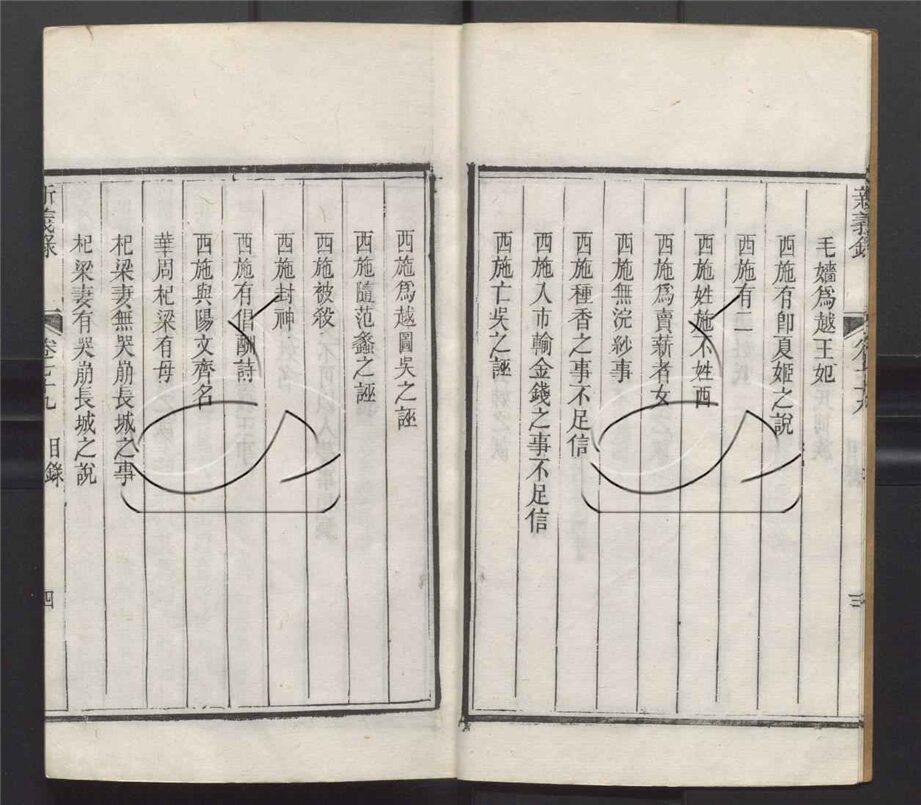 毛嬙爲越王妃
西施有卽夏姬之說
西施有二
西施姓施不姓西
西施爲賣薪者女
西施無浣紗事
西施種香之事不足信
西施入市輸金錢之事不足信
西施亡吳之誣
西施爲越圖吳之誣
西施隨范蠡之誣
西施被殺
西施封神
西施有倡酬詩
西施與陽文齊名
華周杞梁有母
杞梁妻無哭崩長城之事
杞梁妻有哭崩長城之說
新義錄
目錄
四